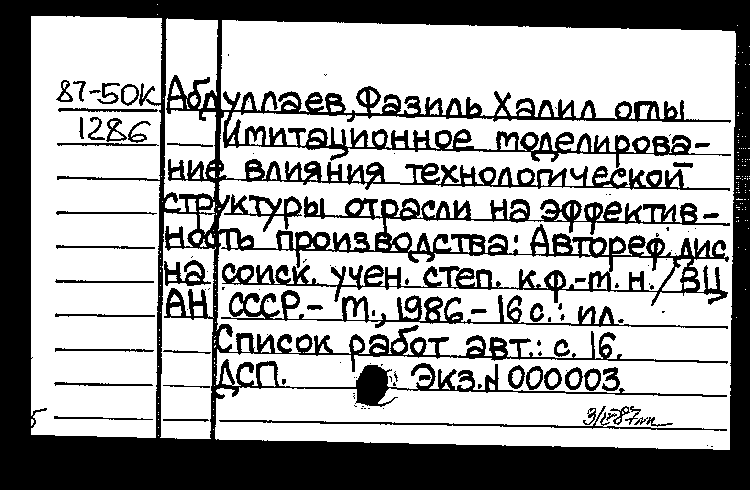 87-50К Абдуллаев, Фазиль Халил оглы
1286 Имитационное моделирова-
ние влияния технологической
структуры отрасли на эффектив-
ность производства: Автореф. дис.
на соиск. учен. степ. к.ф.-м.н. / ВЦ
АН СССР.- М., 1986.- 16 с.: ил.
Список работ авт.: с. 16.
ДСП. Экз.N 000003.